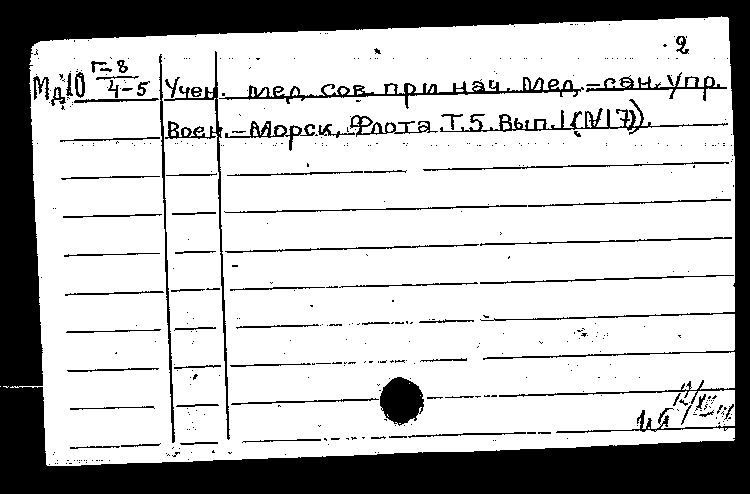 2
Мд10 Г-8/4-5 Учен. мед. сов. при нач. Мед.-сан. Упр.
Воен.-Морск. Флота. Т.5. Вып.1 (N17).